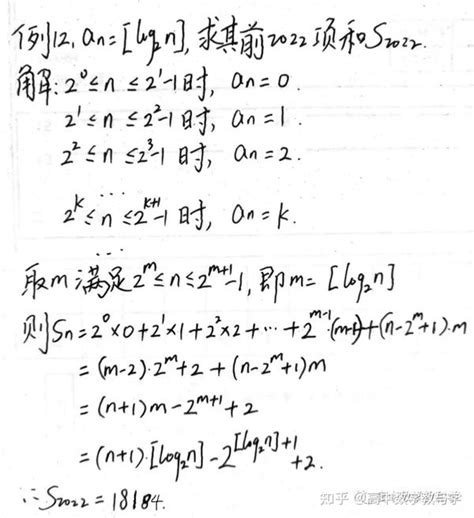 例12. an=[log₂n], 求其前2022项和S₂₀₂₂.
解: 2⁰≤n≤2¹-1时, an=0.
2¹≤n≤2²-1时, an=1.
2²≤n≤2³-1时, an=2.
...
2ᵏ≤n≤2ᵏ⁺¹-1时, an=k.
...
取m满足2ᵐ≤n≤2ᵐ⁺¹-1, 即m=[log₂n]
则Sn=2⁰×0+2¹×1+2²×2+⋯+2ᵐ⁻¹·(m-1)+(n-2ᵐ+1)·m
=(m-2)·2ᵐ+2+(n-2ᵐ+1)m
=(n+1)m-2ᵐ⁺¹+2
=(n+1)·[log₂n]-2^([log₂n]+1)+2.
∴S₂₀₂₂=18184.
知乎 @高中数学教与学